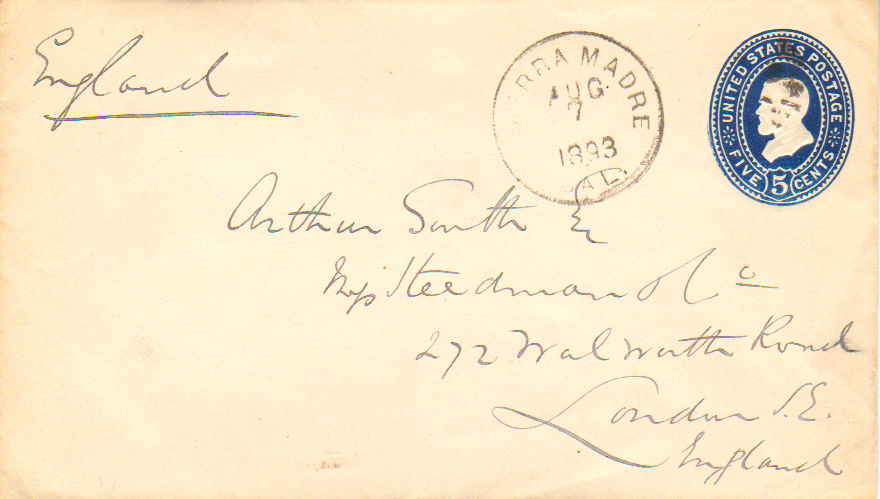 England
SIERRA MADRE
AUG
7
1893
CAL.
UNITED STATES POSTAGE
FIVE 5 CENTS
Arthur South
Steedman & Co
272 Walworth Road
London S.E.
England